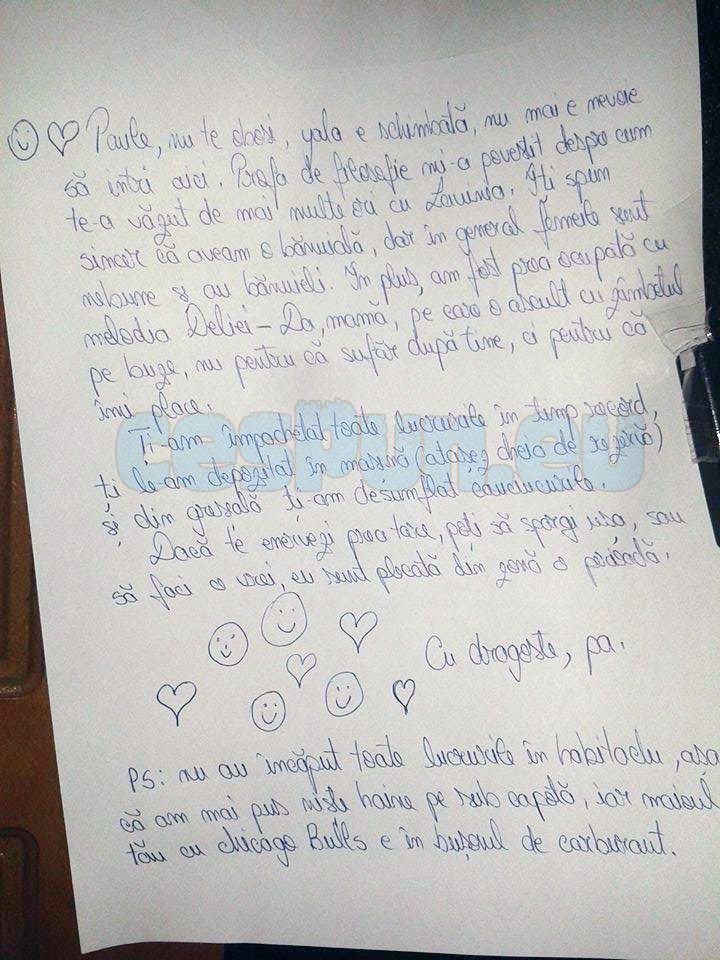 Paule, nu te obosi, yala e schimbată, nu mai e nevoie
să intri aici. Profa de filosofie mi-a povestit despre cum
te-a văzut de mai multe ori cu Lavinia. Iti spun
sincer că aveam o bănuială, dar în general femeile sunt
nebune și au bănuieli. În plus, am fost prea ocupată cu
melodia Deliei - Da, mamă, pe care o ascult cu zâmbetul
pe buze, nu pentru că sufăr după tine, ci pentru că
îmi place.
Ti-am împachetat toate lucrurile în timp record,
ti le-am depozitat în mașină (atașez cheia de rezervă)
și din greșeală ti-am desumflat cauciucurile.
Dacă te enervezi prea tare, poti să spargi ușa, sau
să faci o criză, eu sunt plecată din zonă o perioadă.
Cu dragoste, pa.
PS: nu au încăput toate lucrurile în habitaclu, așa
că am mai pus niste haine pe sub capotă, iar maioul
tău cu Chicago Bulls e în bușonul de carburant.
cespun.eu